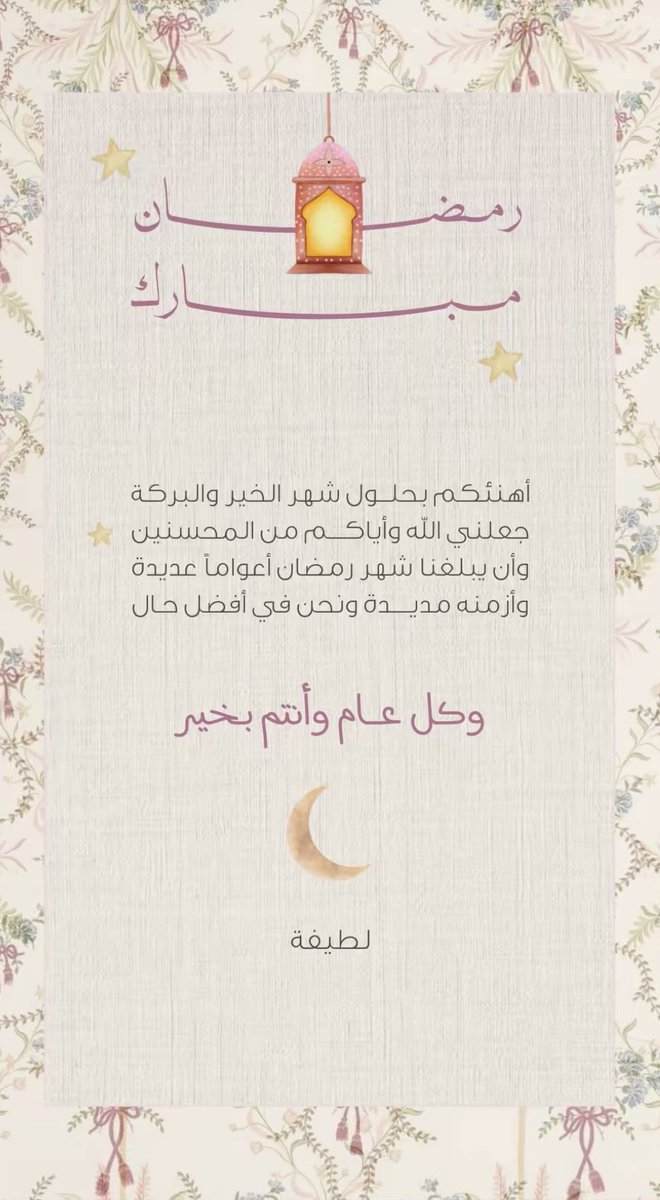 رمضان
مبارك
أهنئكم بحلول شهر الخير والبركة
جعلني الله وأياكم من المحسنين
وأن يبلغنا شهر رمضان أعواماً عديدة
وأزمنه مديدة ونحن في أفضل حال
وكل عام وأنتم بخير
لطيفة